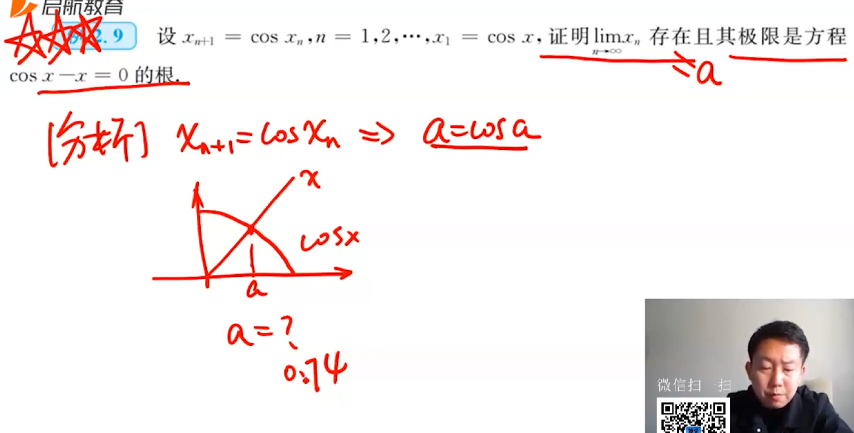 启航教育
2.9 设 xₙ₊₁ = cos xₙ, n = 1,2,⋯, x₁ = cos x, 证明 lim xₙ 存在且其极限是方程
n→∞
cos x − x = 0 的根.
= a
[分析] xₙ₊₁ = cos xₙ ⇒ a = cos a
x
cos x
a
a = ?
0.74
微信扫一扫